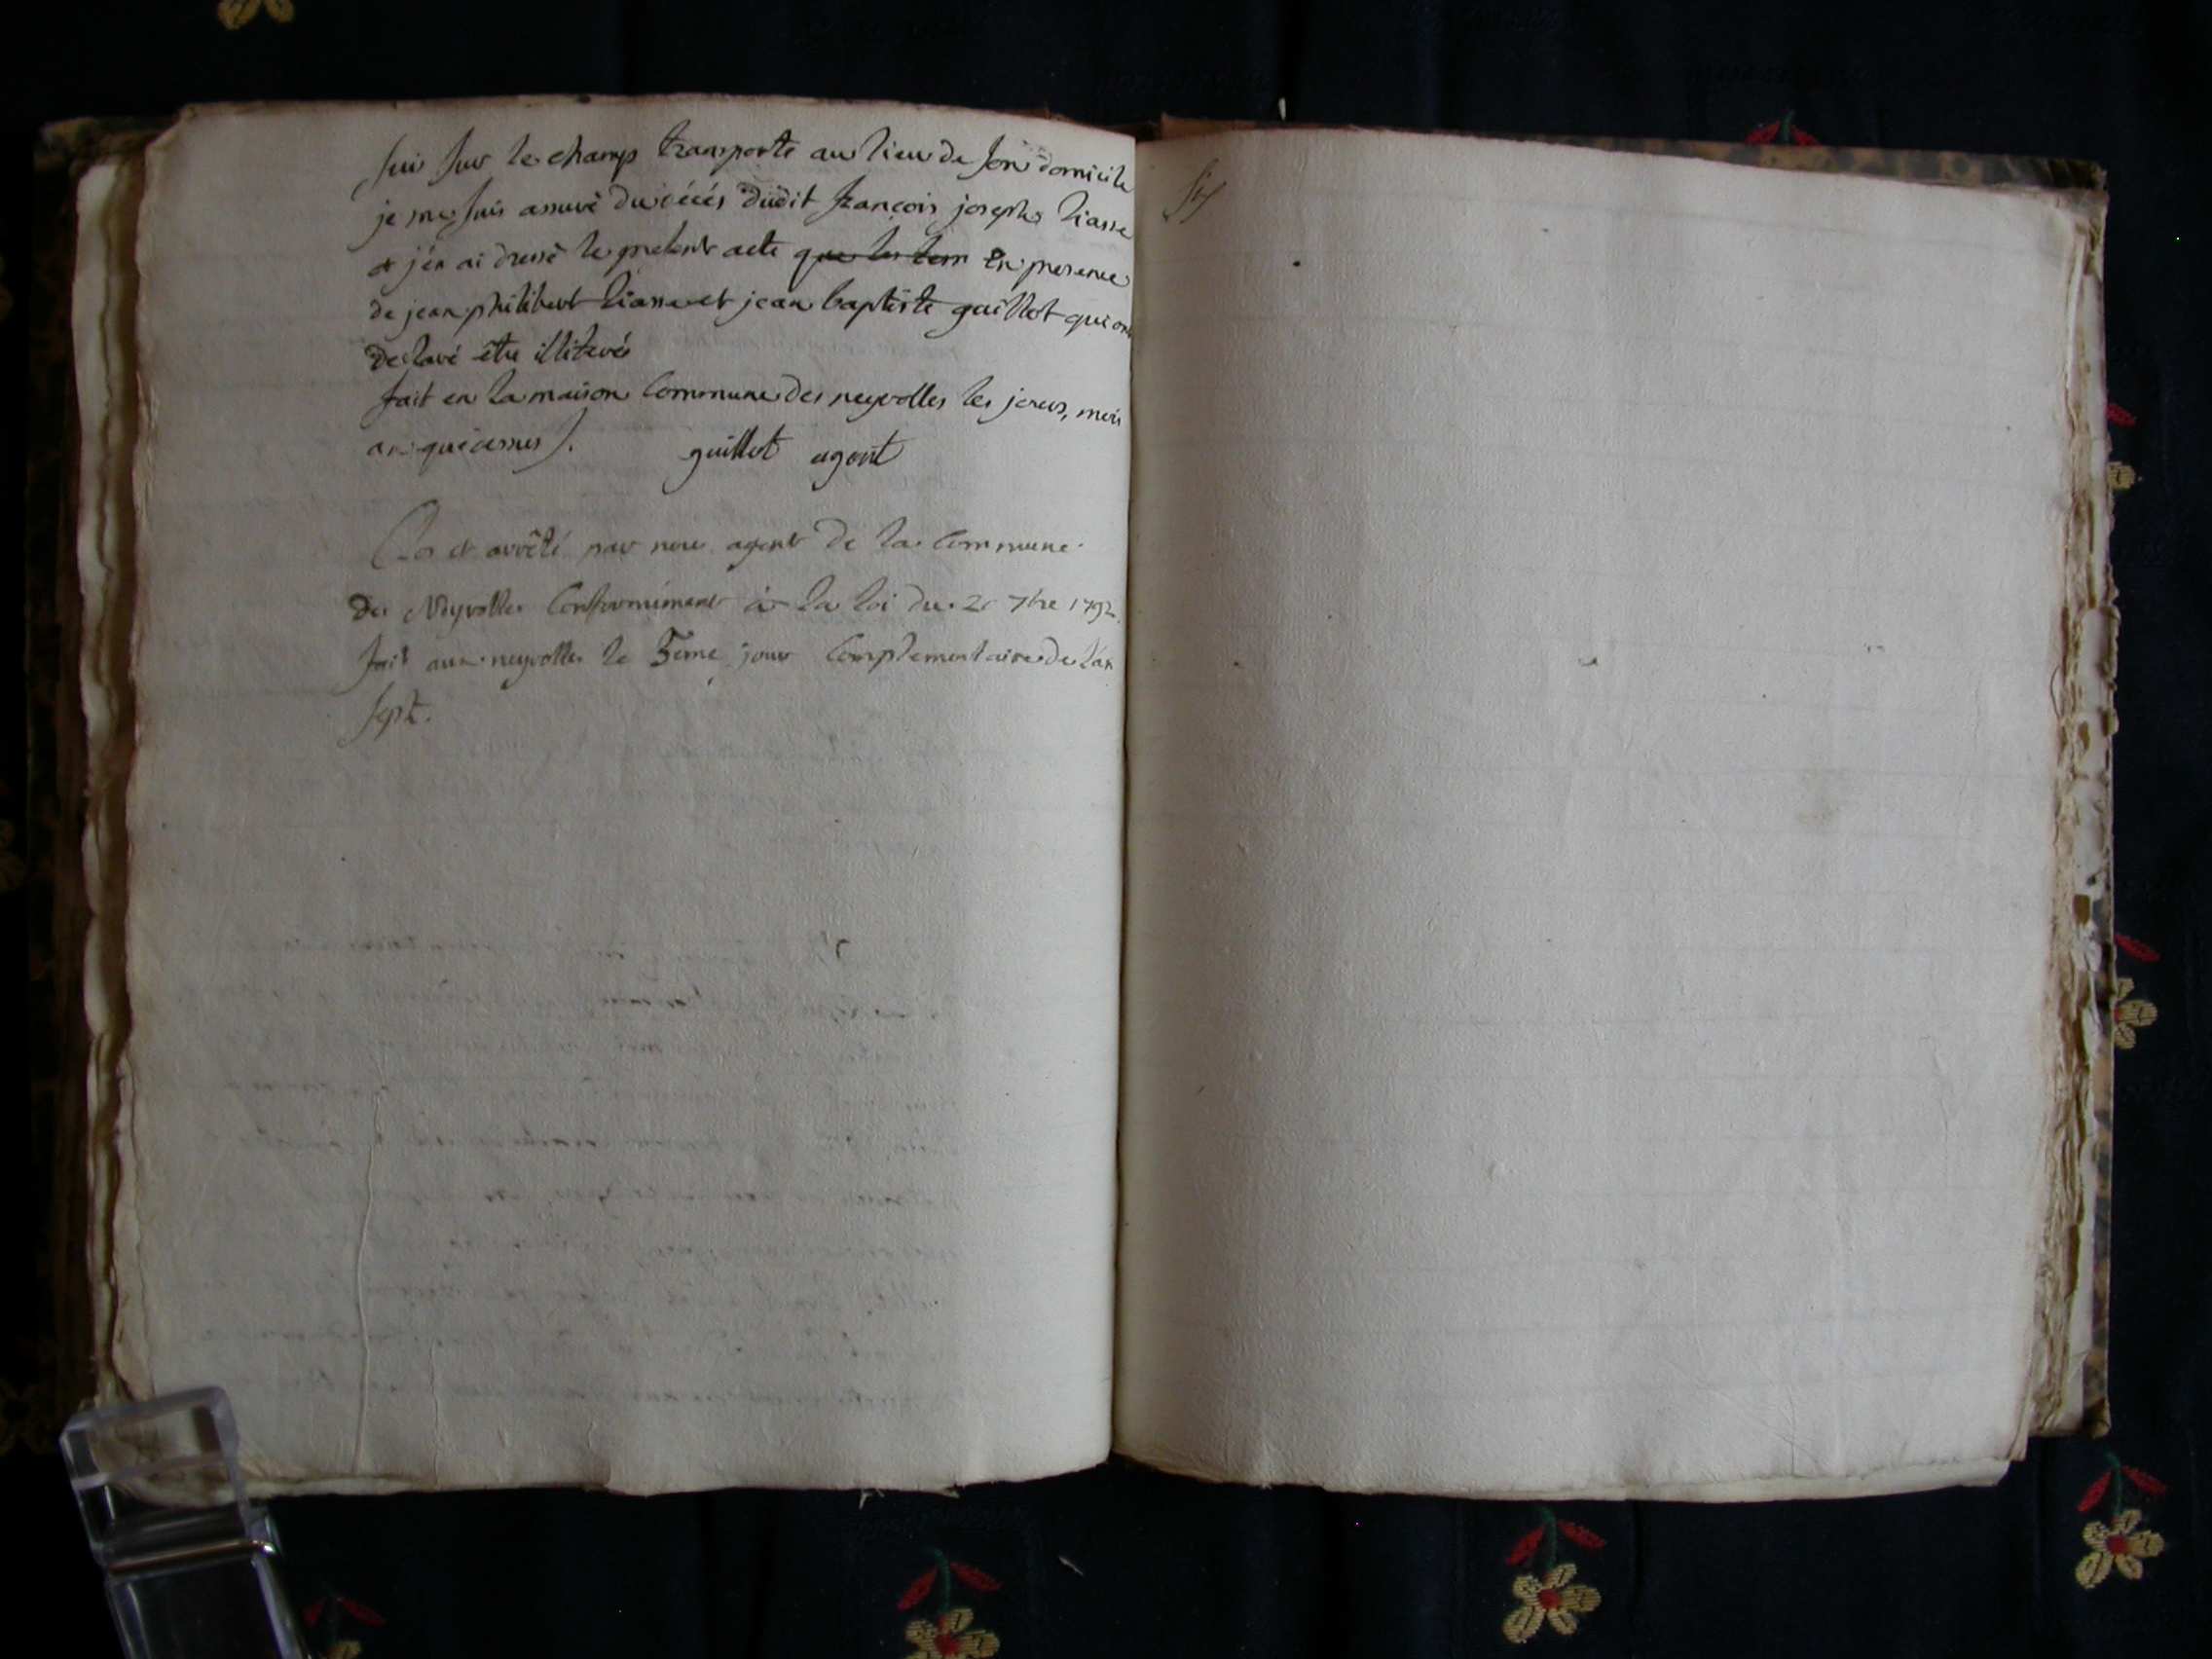 suis sur le champ transporté au lieu de son domicile
je me suis assuré du décés dudit françois joseph liasse
et j'en ai dressé le present acte que les tem en presence
de jean philibert liasse et jean baptiste guillot qui ont
declaré être illiterés
fait en la maison commune des neyrolles les jours, mois
an que dessus /.
guillot agent
Clos et arrêté par nous agent de la Commune
des Neyrolles Conformément à la loi du 20 7bre 1792.
fait aux neyrolles le 5eme jour Complementaire de l'an
sept.